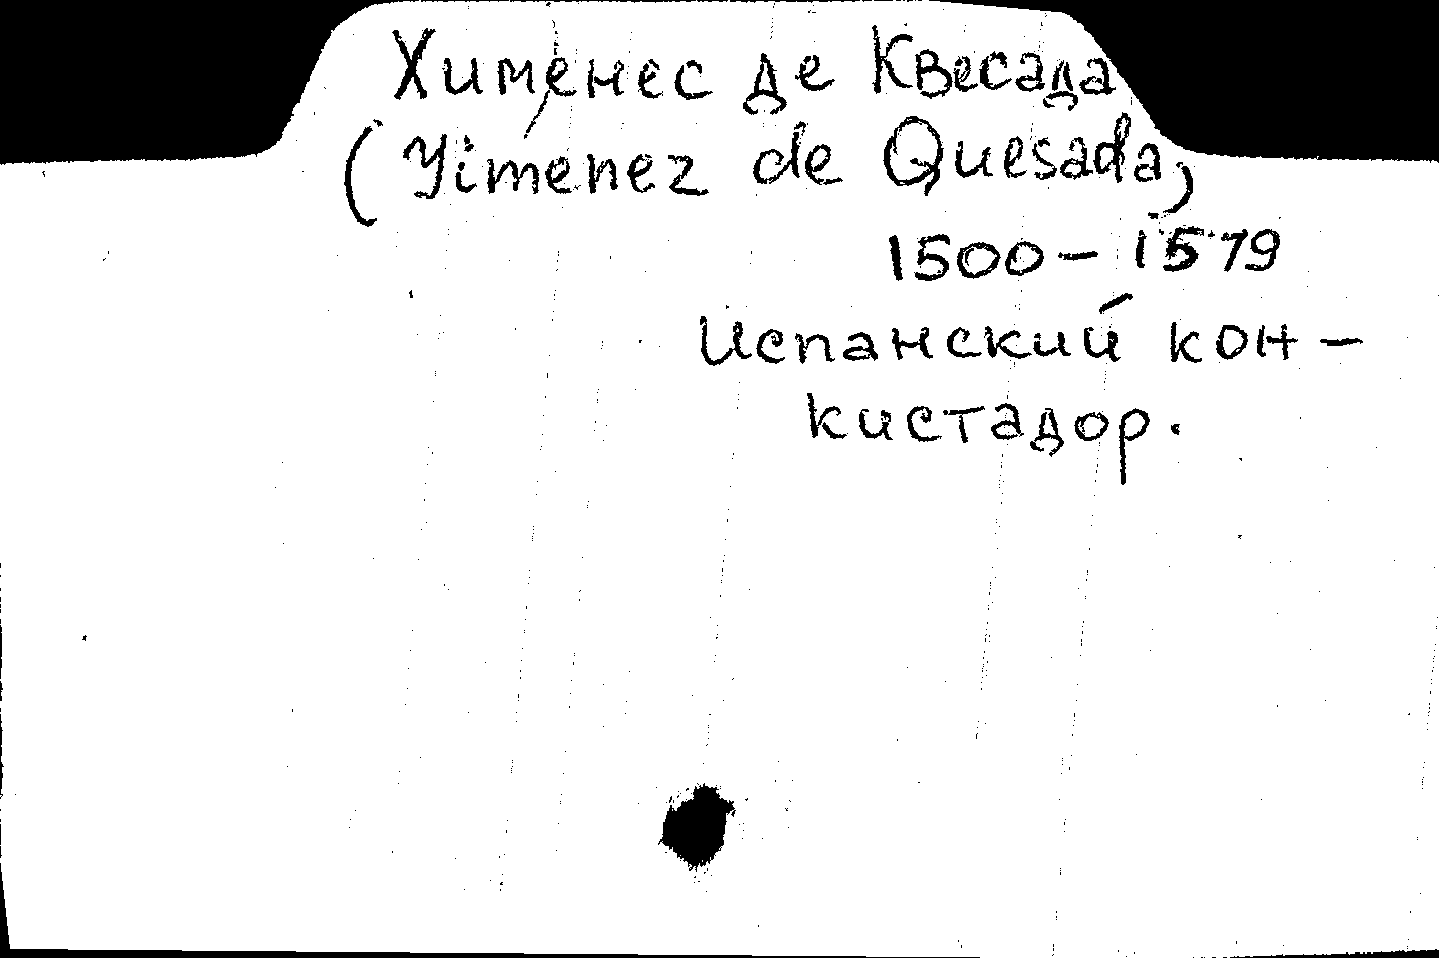 Хименес де Квесада
(Yimenez de Quesada)
1500-1579
Испанский кон-
кистадор.